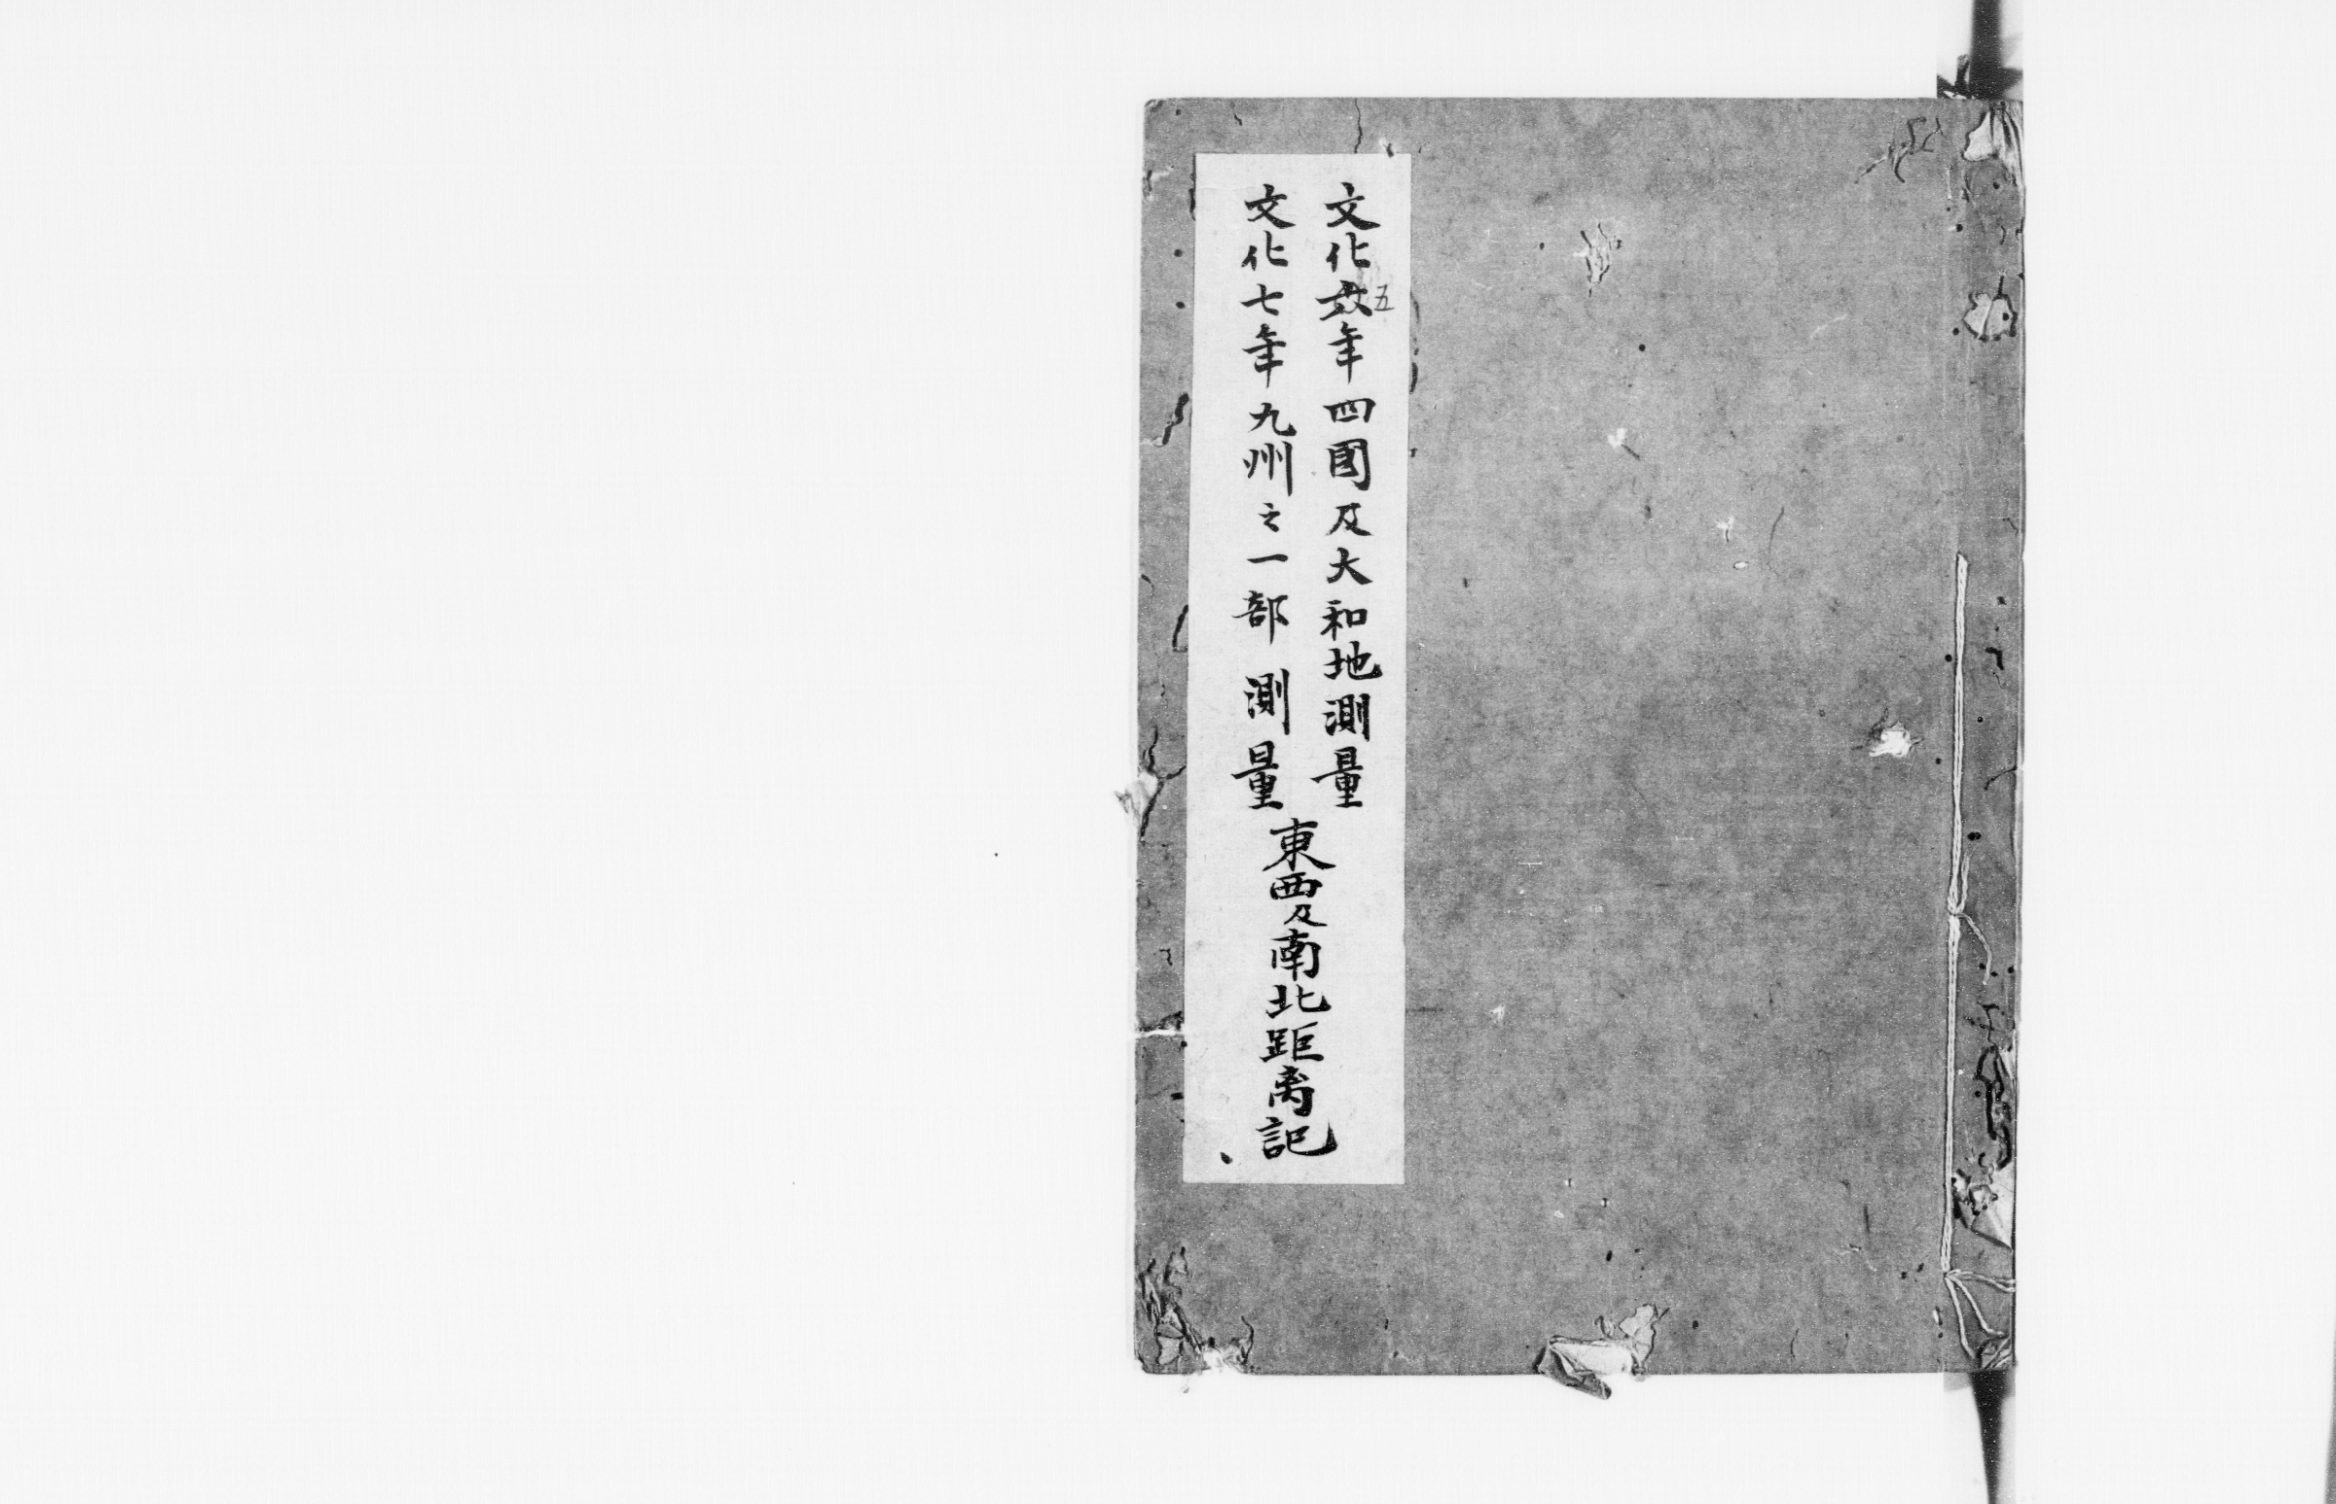 文化六年四國及大和地測量
五
文化七年九州之一部測量
東西及南北距离記